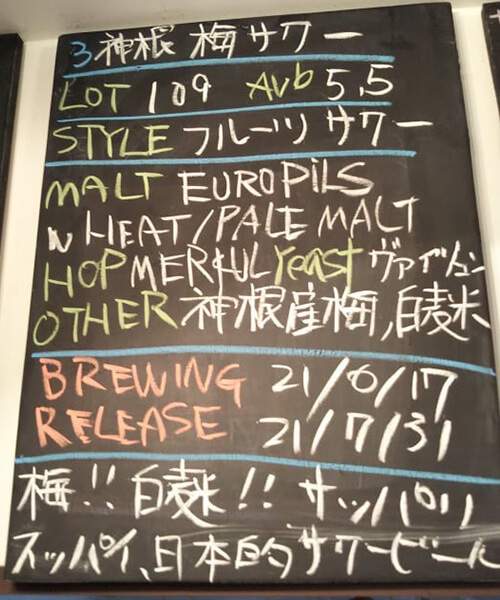 3 神根 梅サワー
LOT 109 Avb 5,5
STYLE フルーツ サワー
MALT EURO PiLS
WHEAT/PALE MALT
HOP MERKUL Yeast ヴァイツェン
OTHER 神根産梅,白麦米
BREWING 21/6/17
RELEASE 21/7/31
梅!! 白麦米!! サッパリ
スッパイ、日本的サワービール